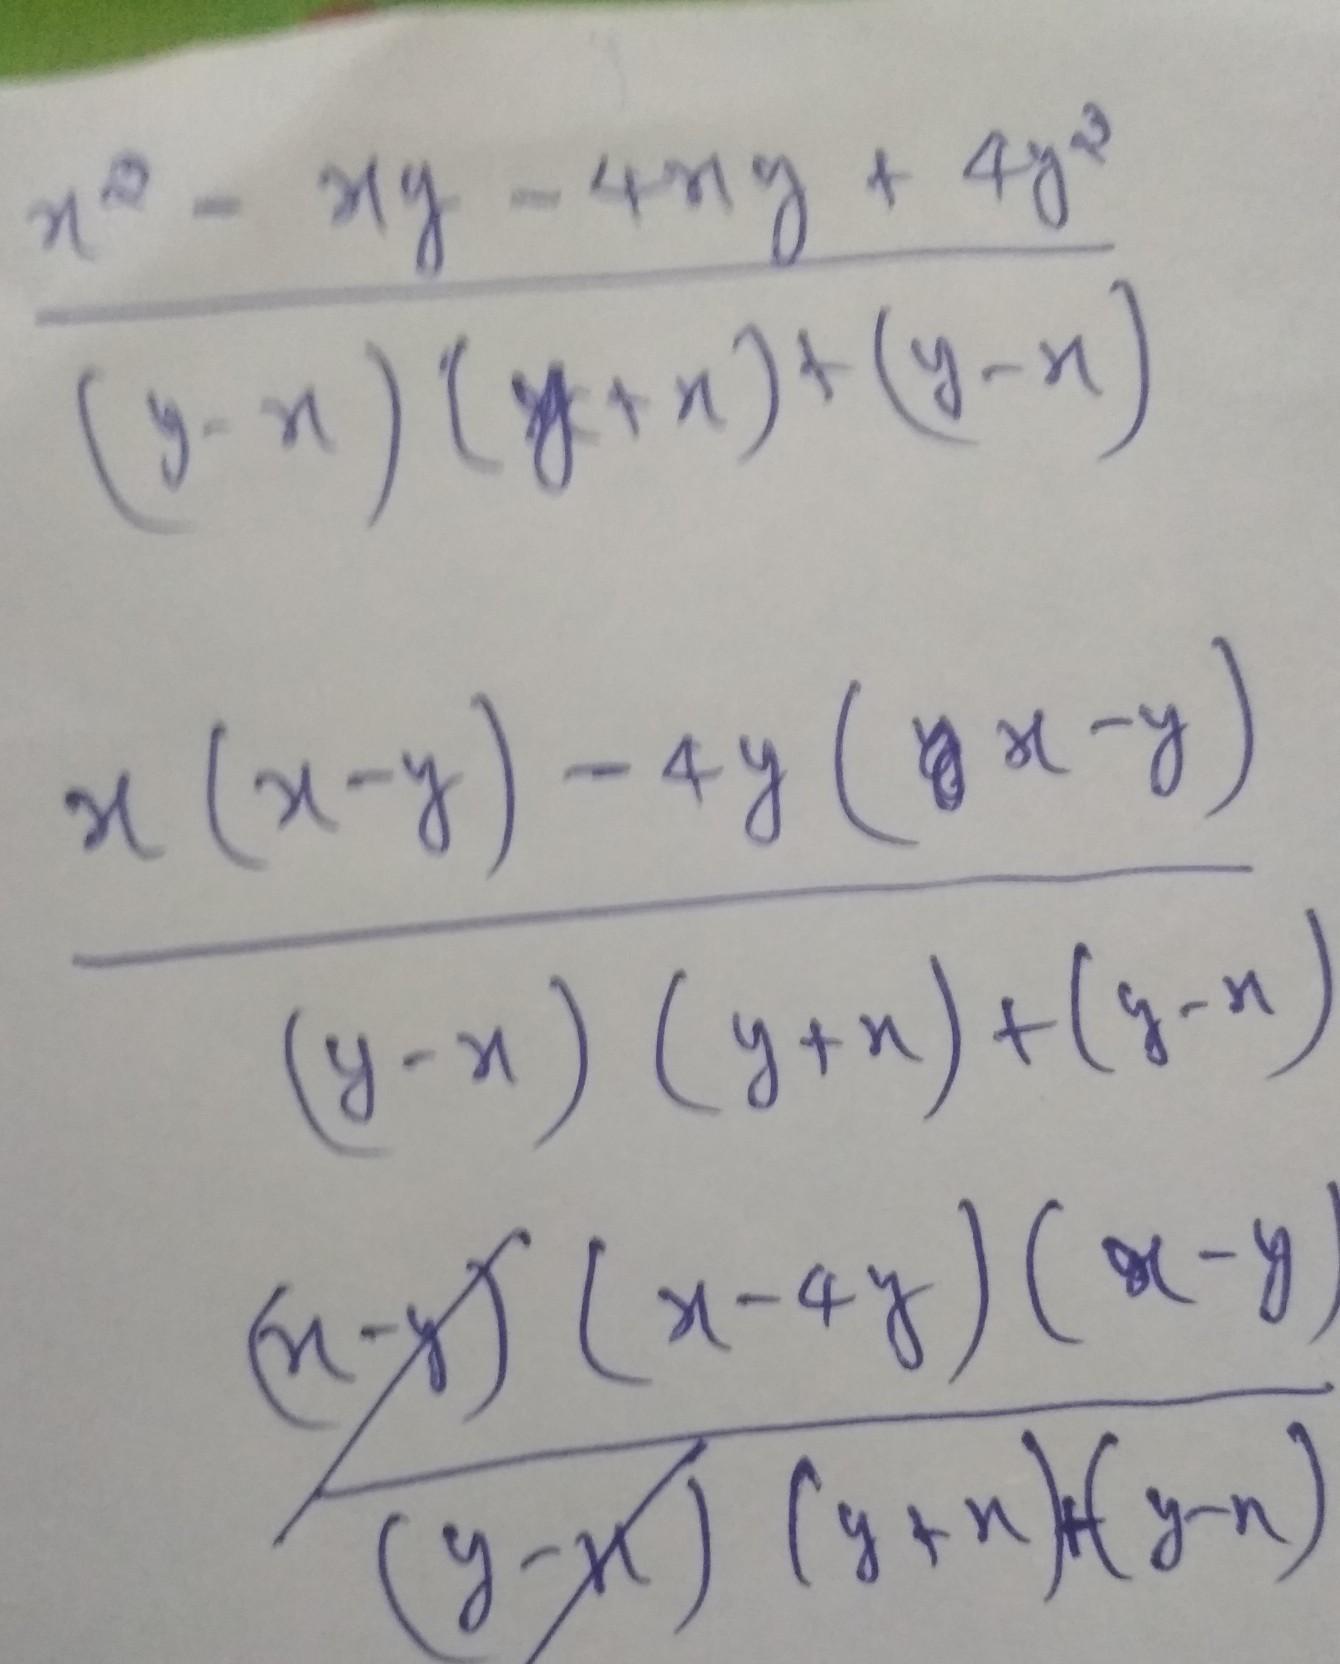 x² - xy - 4xy + 4y²
(y-x) (y+x)+(y-x)
x (x-y) - 4y ( x-y)
(y-x) (y+x)+(y-x)
(x-y) (x-4y) (x-y)
(y-x) (y+x)+(y-x)